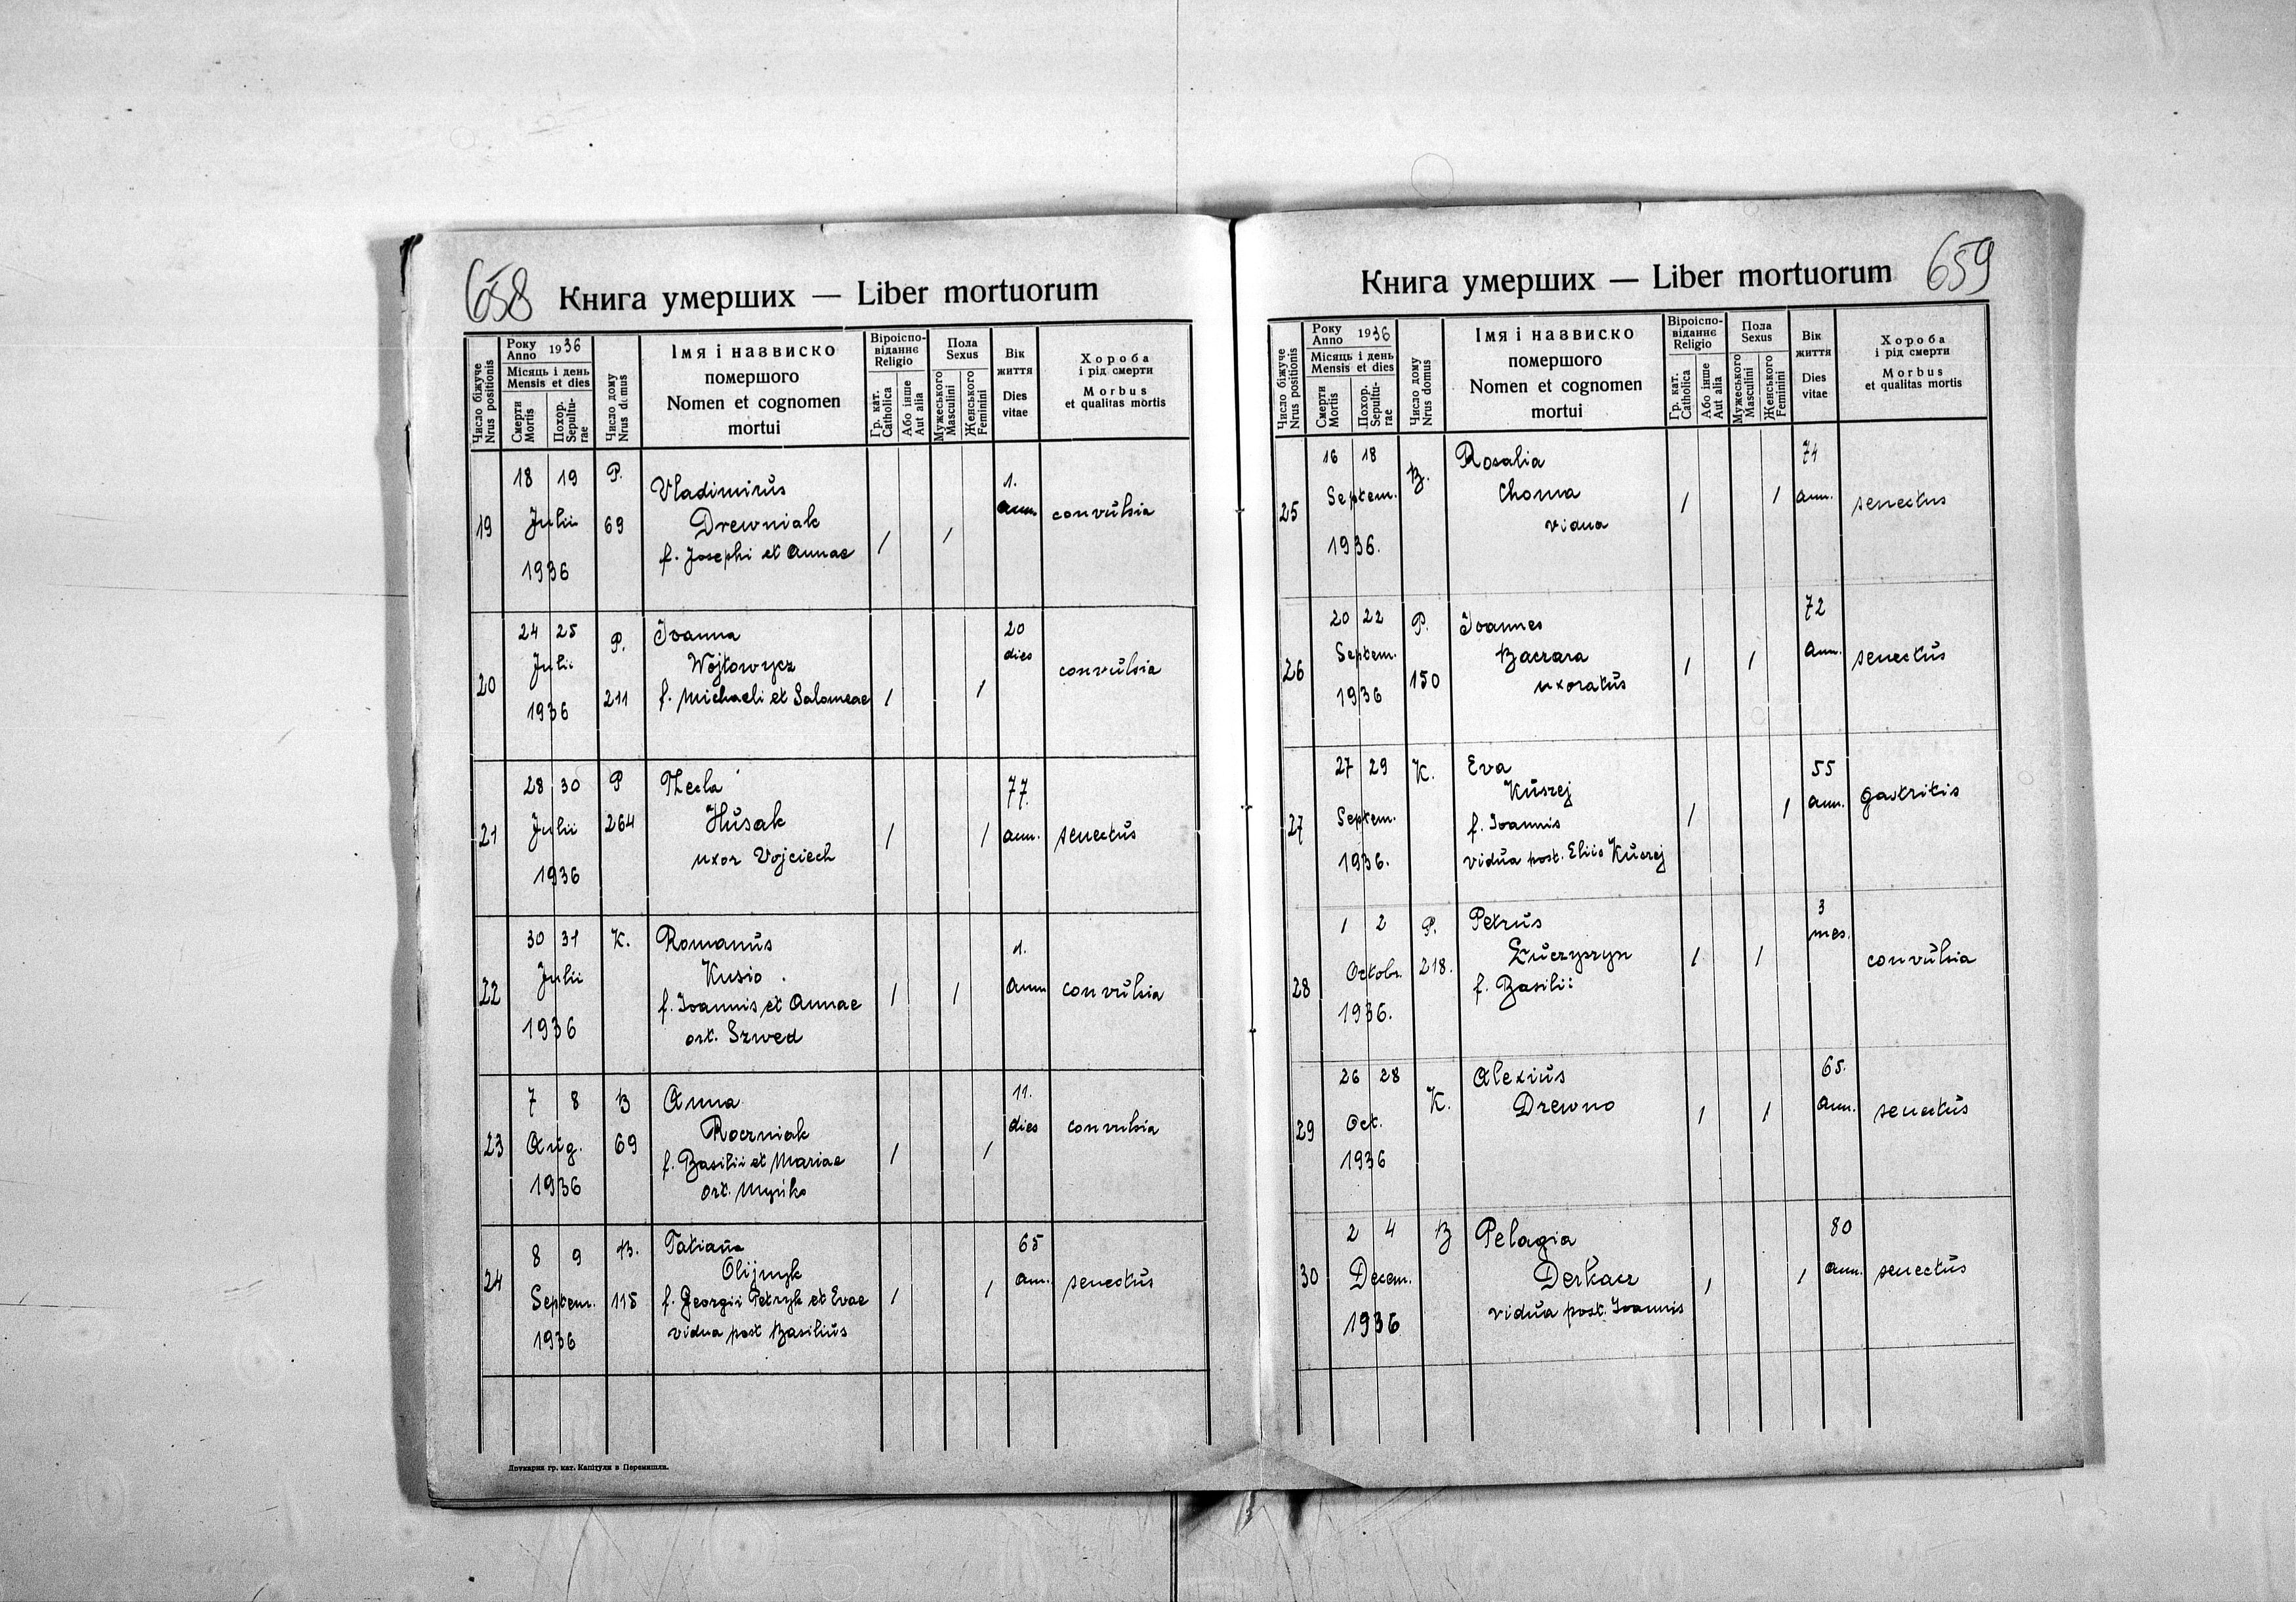 658
Книга умерших — Liber mortuorum
Число біжуче
Nrus positionis
Року
Anno
1936
Місяць і день
Mensis et dies
Смерти
Mortis
Похор.
Sepultu-
rae
Число дому
Nrus domus
Імя і назвиско
помершого
Nomen et cognomen
mortui
Віроіспо-
віданнє
Religio
Гр. кат.
Catholica
Або інше
Aut alia
Пола
Sexus
Мужеського
Masculini
Женського
Feminini
Вік
життя
Dies
vitae
Хороба
і рід смерти
Morbus
et qualitas mortis
19
18 19
Julii
1936
P.
69
Vladimirus
Drewniak
f. Josephi et Annae
/ /
1.
ann.
convulsia
20
24 25
Julii
1936
P.
211
Ioanna
Wojtowycz
f. Michaeli et Salomeae
/ /
20
dies
convulsia
21
28 30
Julii
1936
P
264
Thecla
Husak
uxor Vojciech
/ /
77.
ann.
senectus
22
30 31
Julii
1936
K.
Romanus
Kusio.
f. Ioannis et Annae
ort. Szwed
/ /
1.
ann
convulsia
23
7 8
Aug.
1936
B
69
Anna
Roczniak
f. Basilii et Mariae
ort. Myńko
/ /
11.
dies
convulsia
24
8 9
Septem.
1936
B.
115
Tatiana
Olijnyk
f. Georgii Petryk et Evae
vidua post Basilius
/ /
65
ann.
senectus
Друкарня гр. кат. Капітули в Перемишли.
Книга умерших — Liber mortuorum
659
Число біжуче
Nrus positionis
Року
Anno
1936
Місяць і день
Mensis et dies
Смерти
Mortis
Похор.
Sepultu-
rae
Число дому
Nrus domus
Імя і назвиско
помершого
Nomen et cognomen
mortui
Віроіспо-
віданнє
Religio
Гр. кат.
Catholica
Або інше
Aut alia
Пола
Sexus
Мужеського
Masculini
Женського
Feminini
Вік
життя
Dies
vitae
Хороба
і рід смерти
Morbus
et qualitas mortis
25
16 18
Septem.
1936.
B.
Rosalia
Choma
vidua
/ /
74
ann.
senectus
26
20 22
Septem.
1936
P.
150
Ioannes
Baczara
uxoratus
/ /
72
ann.
senectus
27
27 29
Septem.
1936.
K.
Eva
Kuszej
f. Ioannis
vidua post. Eliis Kuszej
/ /
55
ann.
gastritis
28
1 2
Octobr.
1936.
P.
218.
Petrus
Łuczyszyn
f. Basilii
/ /
3
mes.
convulsia
29
26 28
Oct.
1936
K.
Alexius
Drewno
/ /
65.
ann.
senectus
30
2 4
Decem.
1936
B
Pelagia
Derkacz
vidua post. Ioannis
/ /
80
ann.
senectus